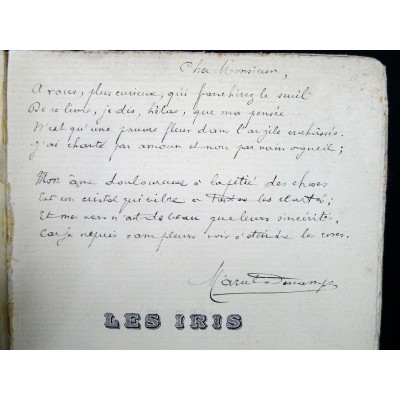 Cher Monsieur,
A vous, plus curieux, qui franchirez le seuil
De ce livre, je dis, hélas, que ma pensée
N'est qu'une pauvre fleur dans l'argile enchâssée.
J'ai chanté par amour et non par vain orgueil;
Mon âme douloureuse a la pitié des choses
Est un cristal qui vibre à toutes les clartés;
Et mes vers n'ont de beau que leurs sincérités,
Car je ne puis sans pleurs voir s'éteindre les roses.
Marcel
LES IRIS